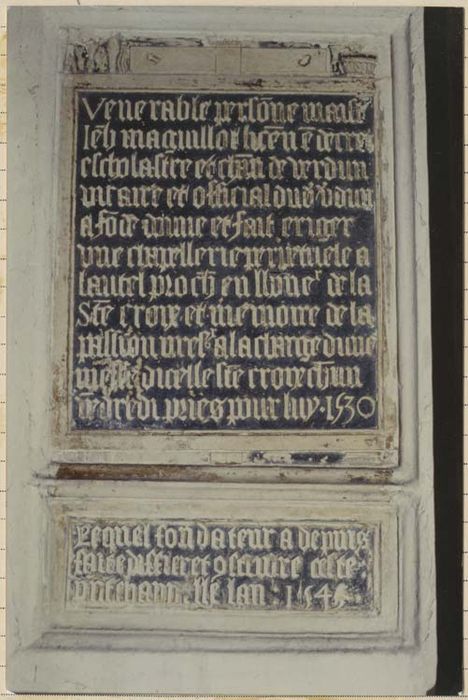 Venerable persone maist
Jeh maguillot licen e decretz
escholastre et chan de verdun
vicaire et official dud v̄dun
a fōde dōnne et fait eriger
une chappellerie perpetuele a
lautel proch en lhōne de la
Ste croix et memoire de la
passion nre sr a la charge dune
messe dicelle ste croix chun
vēdredi priés pour luy · 1530
Lequel fondateur a depuis
faict et construire ceste
lan 154